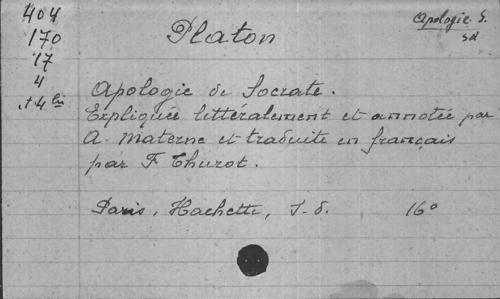 404
170
17
4
Platon
Apologie S.
Apologie de Socrate.
Expliquée littéralement et annotée par
A. Materne et traduite en français
par F. Thurot.
Paris, Hachette, S. d.
16°